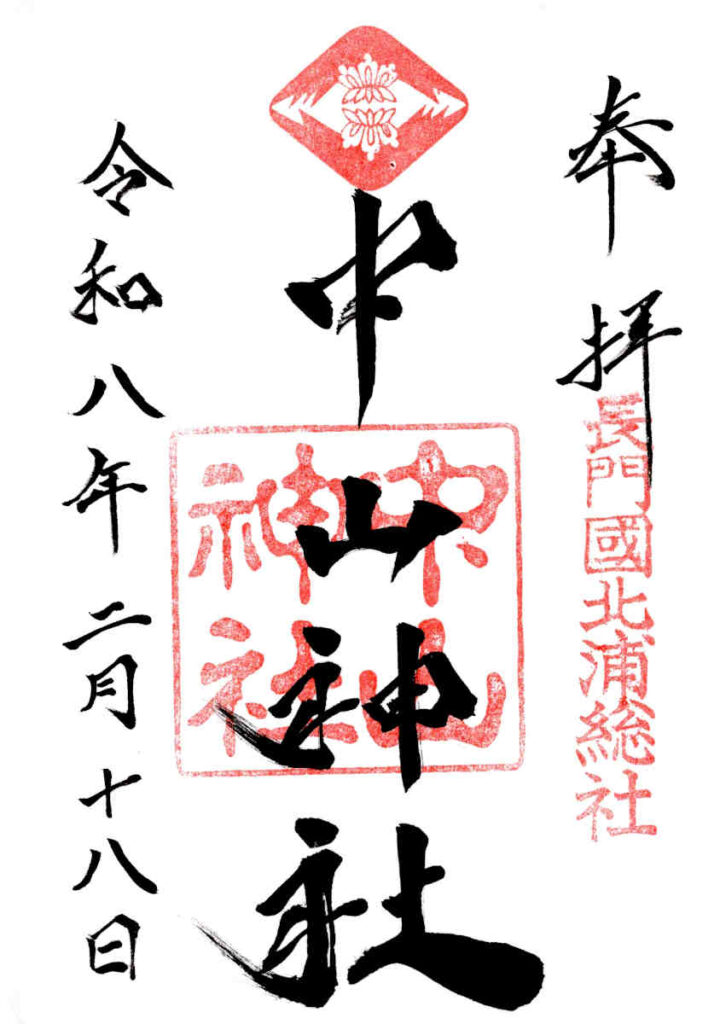 奉拝
長門國北浦総社
中山神社
中山神社
令和八年二月十八日